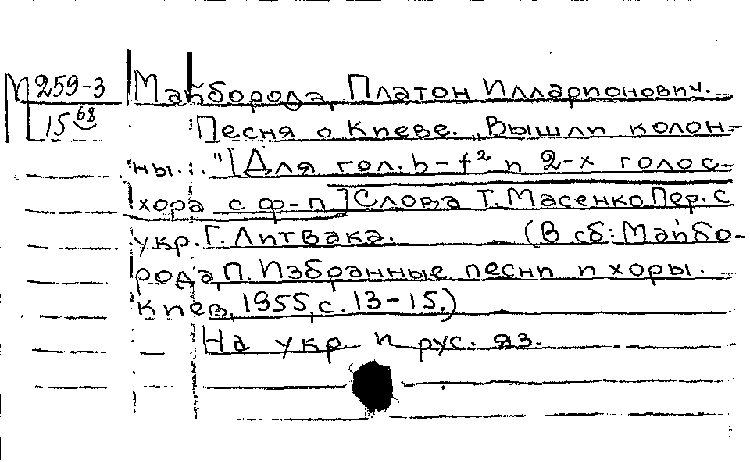 М 259-3
15 68
Майборода, Платон Илларионович.
Песня о Киеве. „Вышли колон-
ны..." [Для гол. h-f² и 2-х голос.
хора с ф-п] Слова Т. Масенко Пер. с
укр. Г. Литвака. (В сб: Майбо-
рода, П. Избранные песни и хоры.
Киев, 1955, с. 13-15.)
На укр. и рус. яз.